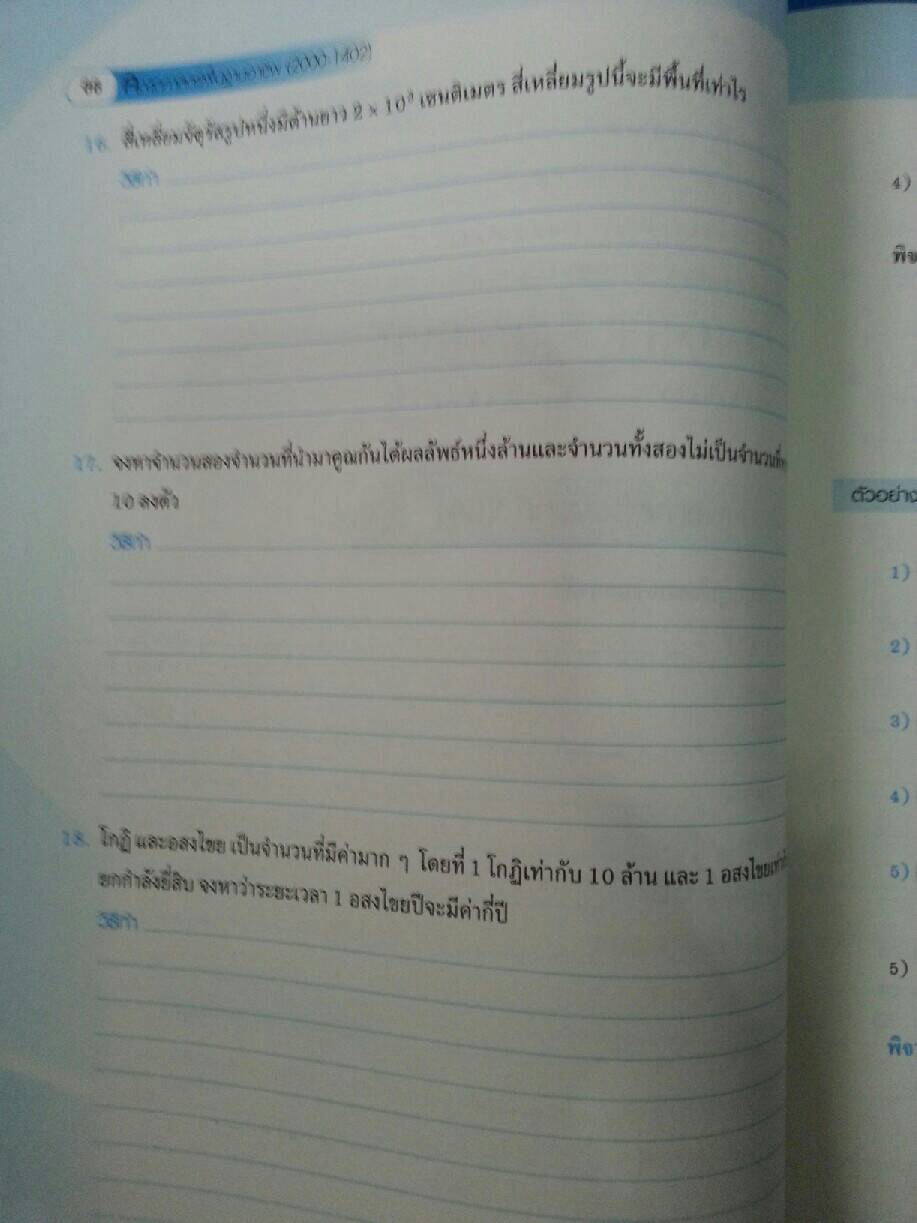 (2000-1402)
16. สี่เหลี่ยมจัตุรัสรูปหนึ่งมีด้านยาว 2 × 10³ เซนติเมตร สี่เหลี่ยมรูปนี้จะมีพื้นที่เท่าไร
วิธีทำ
17. จงหาจำนวนสองจำนวนที่นำมาคูณกันได้ผลลัพธ์หนึ่งล้านและจำนวนทั้งสองไม่เป็นจำนวนที่
10 ลงตัว
วิธีทำ
18. โกฏิ และอสงไขย เป็นจำนวนที่มีค่ามาก ๆ โดยที่ 1 โกฏิเท่ากับ 10 ล้าน และ 1 อสงไขย
ยกกำลังยี่สิบ จงหาว่าระยะเวลา 1 อสงไขยปีจะมีค่ากี่ปี
วิธีทำ
4)
ตัวอย่าง
1)
2)
3)
4)
5)
5)